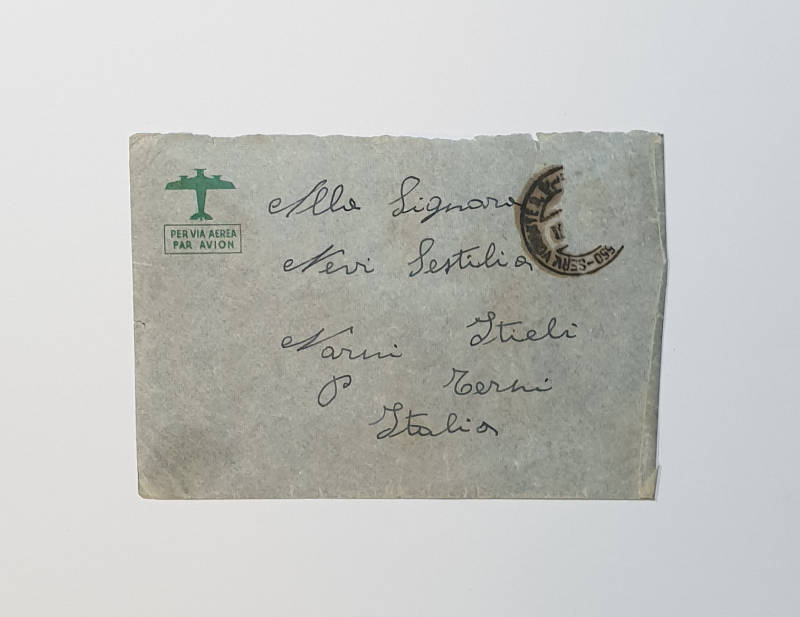 PER VIA AEREA
PAR AVION
Alla Signora
Nevi Sestilia
Narni Stieli
P Terni
Italia